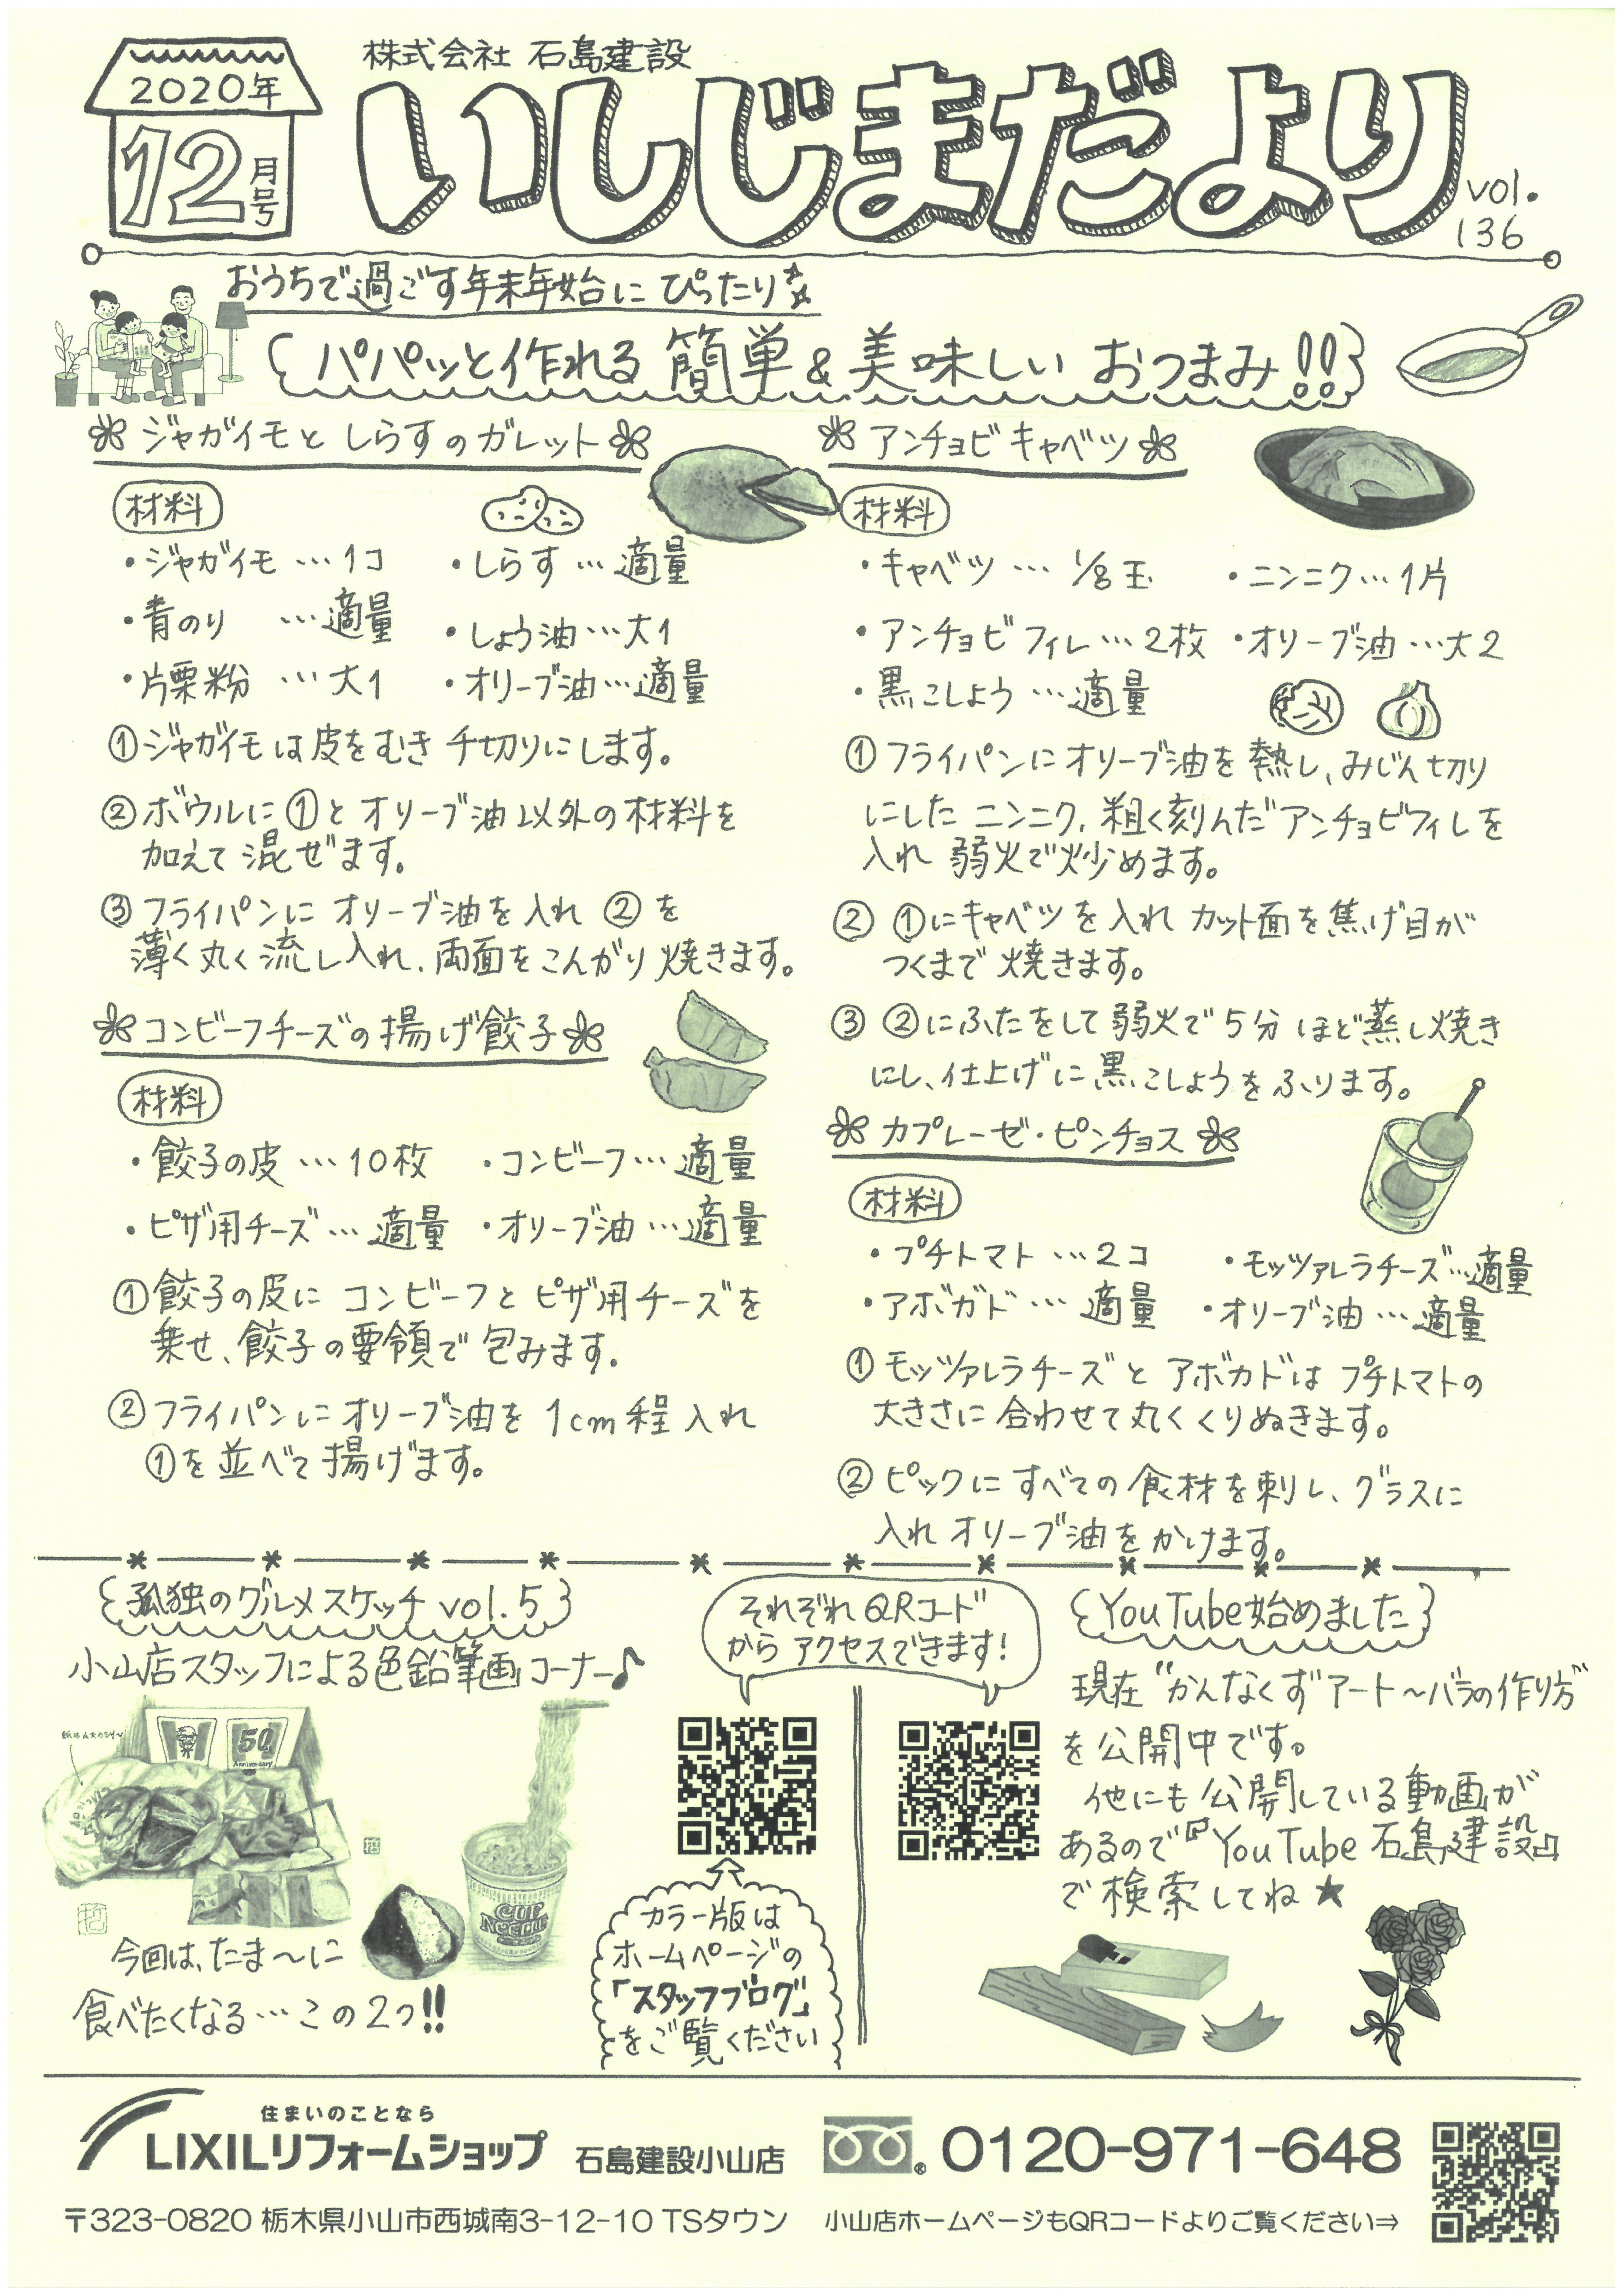 2020年
12月号
株式会社 石島建設
いしじまだより
vol.
136
おうちで過ごす年末年始に ぴったり
パパッと作れる 簡単&美味しい おつまみ!!
ジャガイモとしらすのガレット
材料
・ジャガイモ …1コ
・しらす … 適量
・青のり …適量
・しょう油…大1
・片栗粉 …大1
・オリーブ油…適量
①ジャガイモは皮をむき 千切りにします。
②ボウルに①とオリーブ油以外の材料を
加えて混ぜます。
③フライパンに オリーブ油を入れ ②を
薄く丸く流し入れ、両面をこんがり焼きます。
コンビーフチーズの揚げ餃子
材料
・餃子の皮 …10枚
・コンビーフ… 適量
・ピザ用チーズ… 適量
・オリーブ油 …適量
①餃子の皮に コンビーフと ピザ用チーズを
乗せ、餃子の要領で 包みます。
②フライパンにオリーブ油を 1cm程 入れ
①を並べて揚げます。
アンチョビキャベツ
材料
・キャベツ … 1/8玉
・ニンニク…1片
・アンチョビフィレ…2枚
・オリーブ油 …大2
・黒こしょう …適量
①フライパンにオリーブ油を熱し、みじん切り
にした ニンニク、粗く刻んだアンチョビフィレを
入れ 弱火で炒めます。
② ①にキャベツを入れ カット面を焦げ目が
つくまで 焼きます。
③ ②にふたをして弱火で5分ほど蒸し焼き
にし、仕上げに黒こしょうをふります。
カプレーゼ・ピンチョス
材料
・プチトマト …2コ
・モッツァレラチーズ…適量
・アボガド … 適量
・オリーブ油 … 適量
①モッツァレラチーズと アボカドは プチトマトの
大きさに合わせて丸くくりぬきます。
②ピックにすべての食材を刺し、グラスに
入れオリーブ油をかけます。
孤独のグルメスケッチ vol.5
小山店スタッフによる色鉛筆画コーナー♪
50th
Anniversary
CUP
NOODLE
今回は、たま〜に
食べたくなる…この2つ!!
それぞれQRコード
からアクセスできます!
カラー版は
ホームページの
「スタッフブログ」
をご覧ください
YouTube始めました
現在“かんなくずアート〜バラの作り方”
を公開中です。
他にも公開している動画が
あるので『YouTube 石島建設』
で検索してね★
住まいのことなら
LIXILリフォームショップ 石島建設小山店
0120-971-648
〒323-0820 栃木県小山市西城南3-12-10 TSタウン
小山店ホームページもQRコードよりご覧ください⇒